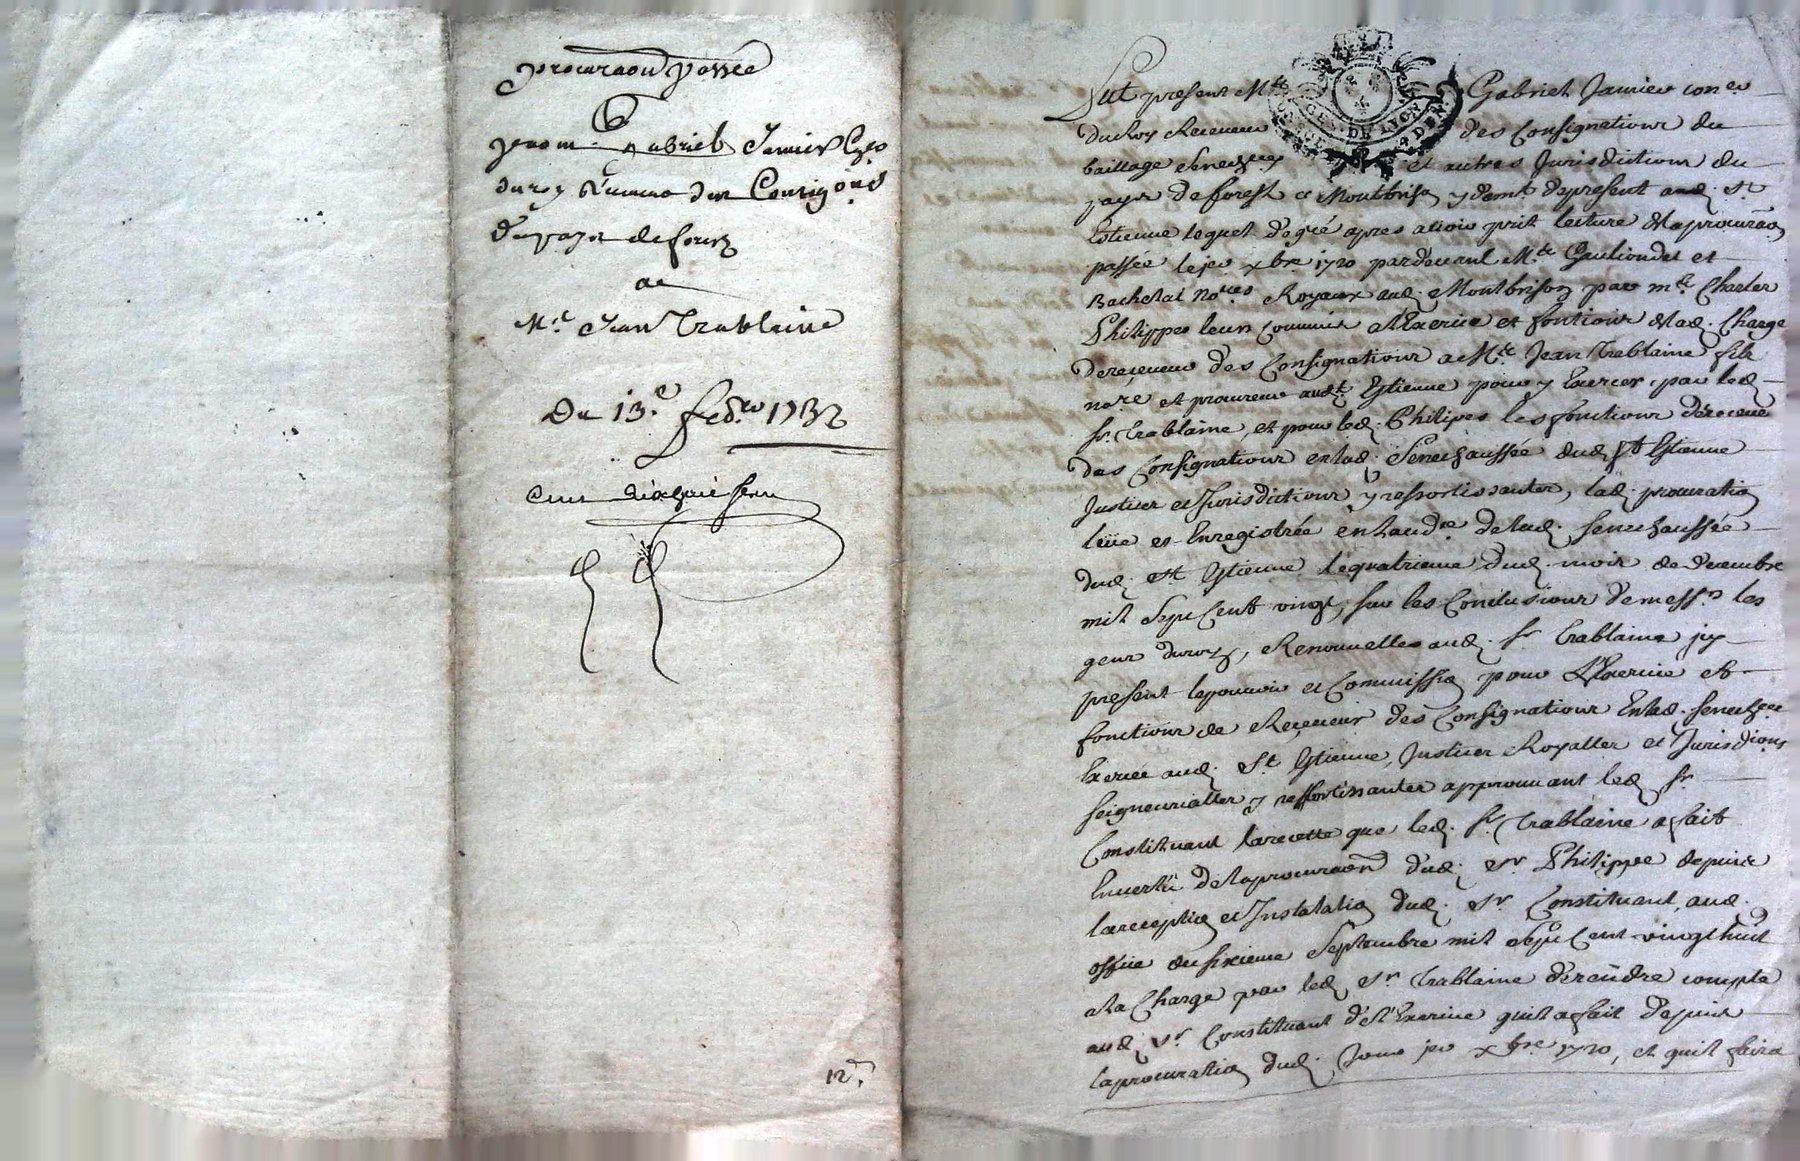 procuraon passée
Gabriel Jamier Con.er
du roy Receveur des Consignons
du pays de forest
a
M.e Jean Trablaine
Du 13.e feb.er 1732
12.
GEN. DE LYON
Fut present M.re Gabriel Jamier con.er
du Roy Receveur des Consignations du
baillage Senech.ee et autres Jurisdictions du
pays de forest a Montbrison y dem.t de present aud. St
Estienne lequel de gré apres avoir prit lecture de la procura.on
passée le jer xbre 1720 pardevant M.re et
No.res Royaux aud. Montbrison par m.re Charles
Philippes leur Commis a l'Exercice et fontions de lad. Charge
de receveur des Consignations a M.re Jean Trablaine fils
no.re et procureur aud.t Estienne pour y Exercer par led.
Sr. Trablaine, et pour led. Philipes les fonctions de receveur
des Consignations en lad. Senechaussée dud. St Estienne
Justices et Jurisdictions y ressortissantes, lad. procuration
lüe et Enregistrée en l'aud.ce de lad. Senechaussée
dud. St Estienne le quatrieme dud. mois de decembre
mil Sept Cent vingt, sur les Conclusions de mess.rs les
gens du roy, Renouvelle aud. Sr. Trablaine jcy
present le pouvoir et Commission pour l'Exercice et
fonctions de Receveur des Consignations En lad. Senech.ee
Exercée aud. St Estienne, Justices Royalles et Jurisdions
Seigneurialles y ressortissantes approuvant led. Sr
Constituant la recette que led. Sr. Trablaine a fait
En vertü de la procuraon dud. Sr Philippe depuis
la reception et Instalation dud. Sr. Constituant, aud.
office du sixieme Septembre mil Sept Cent vingt huit
a la Charge par led. Sr. Trablaine de rendre compte
aud. Sr. Constituant de l'Exercice quil a fait depuis
la procuration dud. Jour jer xbre 1720, et quil faira